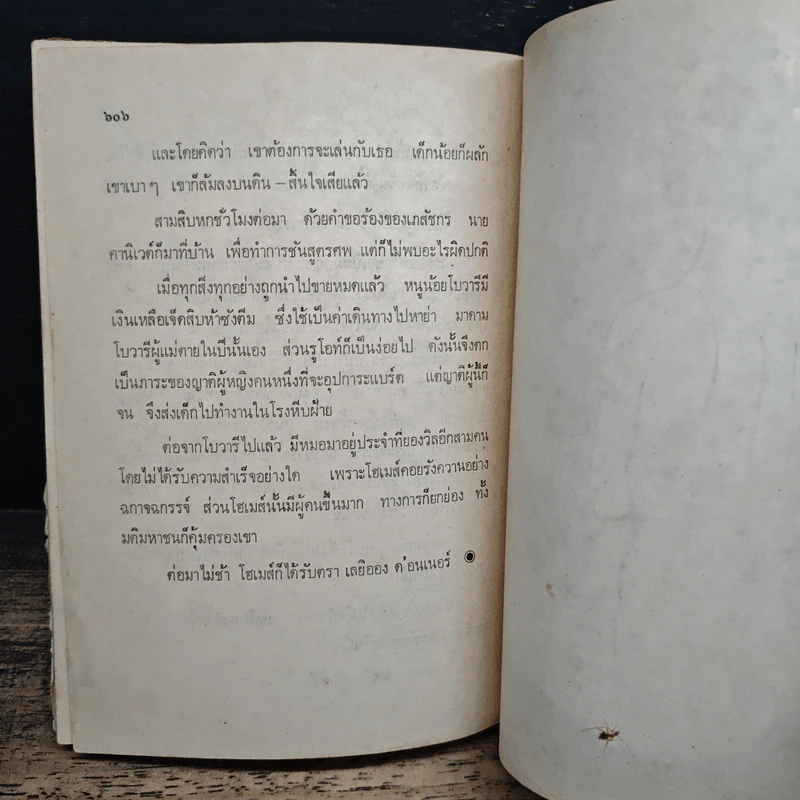 ๖๐๖
และโดยคิดว่า เขาต้องการจะเล่นกับเธอ เด็กน้อยก็ผลัก
เขาเบา ๆ เขาก็ล้มลงบนดิน – สิ้นใจเสียแล้ว
สามสิบหกชั่วโมงต่อมา ด้วยคำขอร้องของเภสัชกร นาย
คานิเวต์ก็มาที่บ้าน เพื่อทำการชันสูตรศพ แต่ก็ไม่พบอะไรผิดปกติ
เมื่อทุกสิ่งทุกอย่างถูกนำไปขายหมดแล้ว หนูน้อยโบวารีมี
เงินเหลือเจ็ดสิบห้าซังตีม ซึ่งใช้เป็นค่าเดินทางไปหาย่า มาดาม
โบวารีผู้แม่ตายในปีนั้นเอง ส่วนรูโอท์ก็เป็นง่อยไป ดังนั้นจึงตก
เป็นภาระของญาติผู้หญิงคนหนึ่งที่จะอุปการะแบร์ต แต่ญาติผู้นี้ก็
จน จึงส่งเด็กไปทำงานในโรงหีบฝ้าย
ต่อจากโบวารีไปแล้ว มีหมอมาอยู่ประจำที่ยองวิลอีกสามคน
โดยไม่ได้รับความสำเร็จอย่างใด เพราะโฮเมส์คอยรังควานอย่าง
ฉกาจฉกรรจ์ ส่วนโฮเมส์นั้นมีผู้คนขึ้นมาก ทางการก็ยกย่อง ทั้ง
มติมหาชนก็คุ้มครองเขา
ต่อมาไม่ช้า โฮเมส์ก็ได้รับตรา เลยิออง ด่อนเนอร์